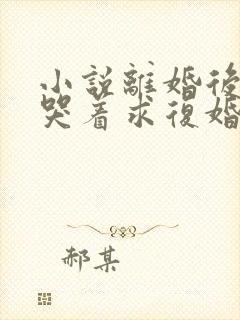 小說離婚後
哭着求復婚
郝某